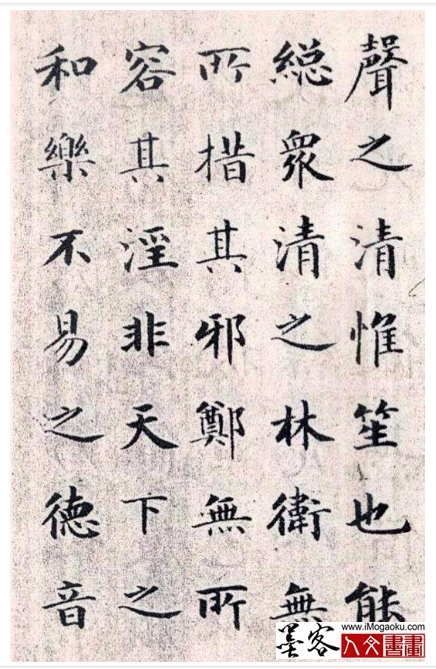 聲之清惟笙也能
緫眾清之林衛無
所措其邪鄭無所
容其淫非天下之
和樂不易之德音
www.iMogaoku.com
墨客人文書畫